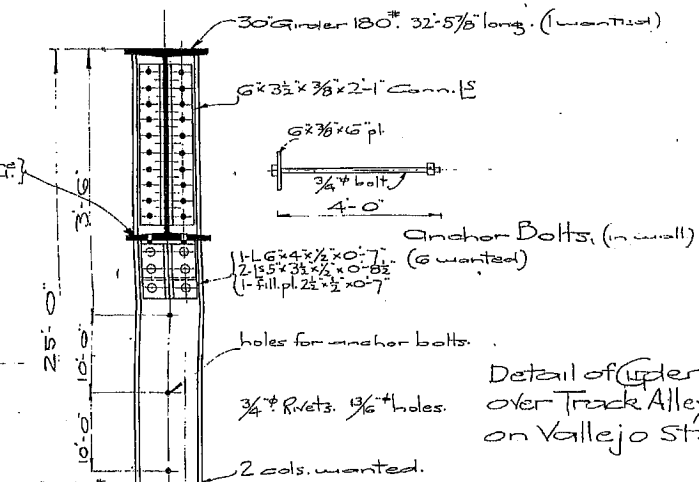 30" Girder 180#. 32'-5 7/8" long. (1 wanted)
6"x3½"x3/8"x2'-1" Conn. Ls
6"x3/8"x6" pl.
3/4"ϕ bolt
4'-0"
Anchor Bolts, (in wall)
(6 wanted)
1-L 6"x4"x½"x0'-7"
2-Ls 5"x3½"x½"x0'-8½"
1-fill. pl. 2½"x½"x0'-7"
3'-6"
25'-0"
10'-0"
10'-0"
holes for anchor bolts.
3/4"ϕ Rivets. 13/16"ϕ holes.
2 cols. wanted.
Detail of Girder
over Track Alle
on Vallejo St